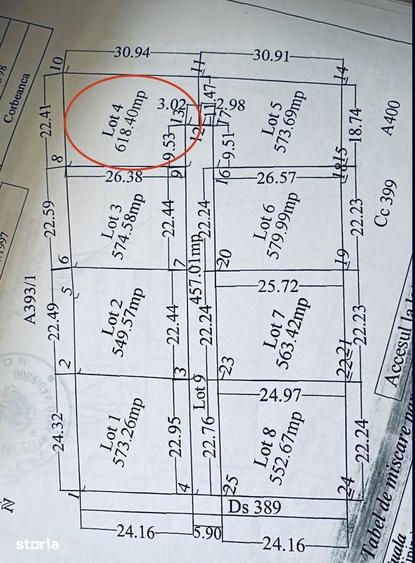 Corbeanca
10
30.94
11
30.91
14
22.41
Lot 4
618.40mp
3.02
2.98
9.53
9.51
Lot 5
573.69mp
18.74
A400
8
26.38
9
16
26.57
Cc 399
22.59
Lot 3
574.58mp
22.44
22.24
Lot 6
579.99mp
22.23
6
7
20
19
A393/1
5
457.01mp
25.72
22.49
Lot 2
549.57mp
22.44
22.24
Lot 7
563.42mp
22.23
2
3
23
24.97
24.32
Lot 1
573.26mp
22.95
Lot 9
22.76
Lot 8
552.67mp
22.24
1
4
25
24
Ds 389
24.16
5.90
24.16
Tabel de miscare
N
storia